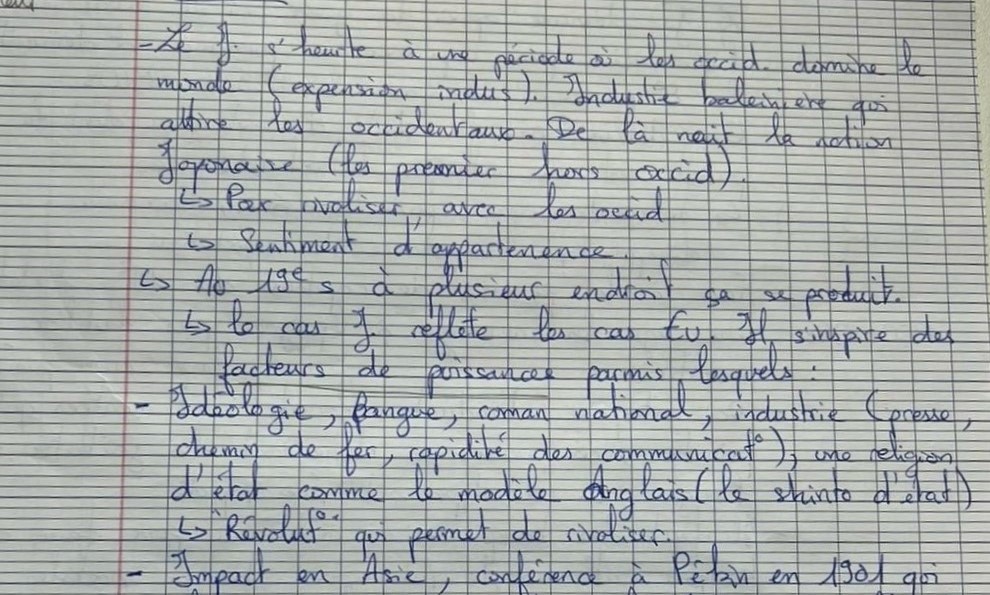 - Le J. s'heurte à une période où les occid. domine le
monde (expension indus). Industrie baleinière qui
attire les occidentaux. De là nait la nation
Japonaise (les premier hors occid).
↳ Par rivaliser avec les occid
↳ Sentiment d'appartenence.
↳ Au 19e s à plusieur endroit ça se produit.
↳ le cas J. reflète les cas Eu. Il s'inspire des
facteurs de puissances parmis lesquels :
- Idéologie, langue, roman national, industrie (presse,
chemin de fer, rapidité des communicat°), une religion
d'état comme le modèle Anglais (le shinto d'état)
↳ "Révolut°" qui permet de rivaliser.
- Impact en Asie, conférence à Pékin en 1901 qui